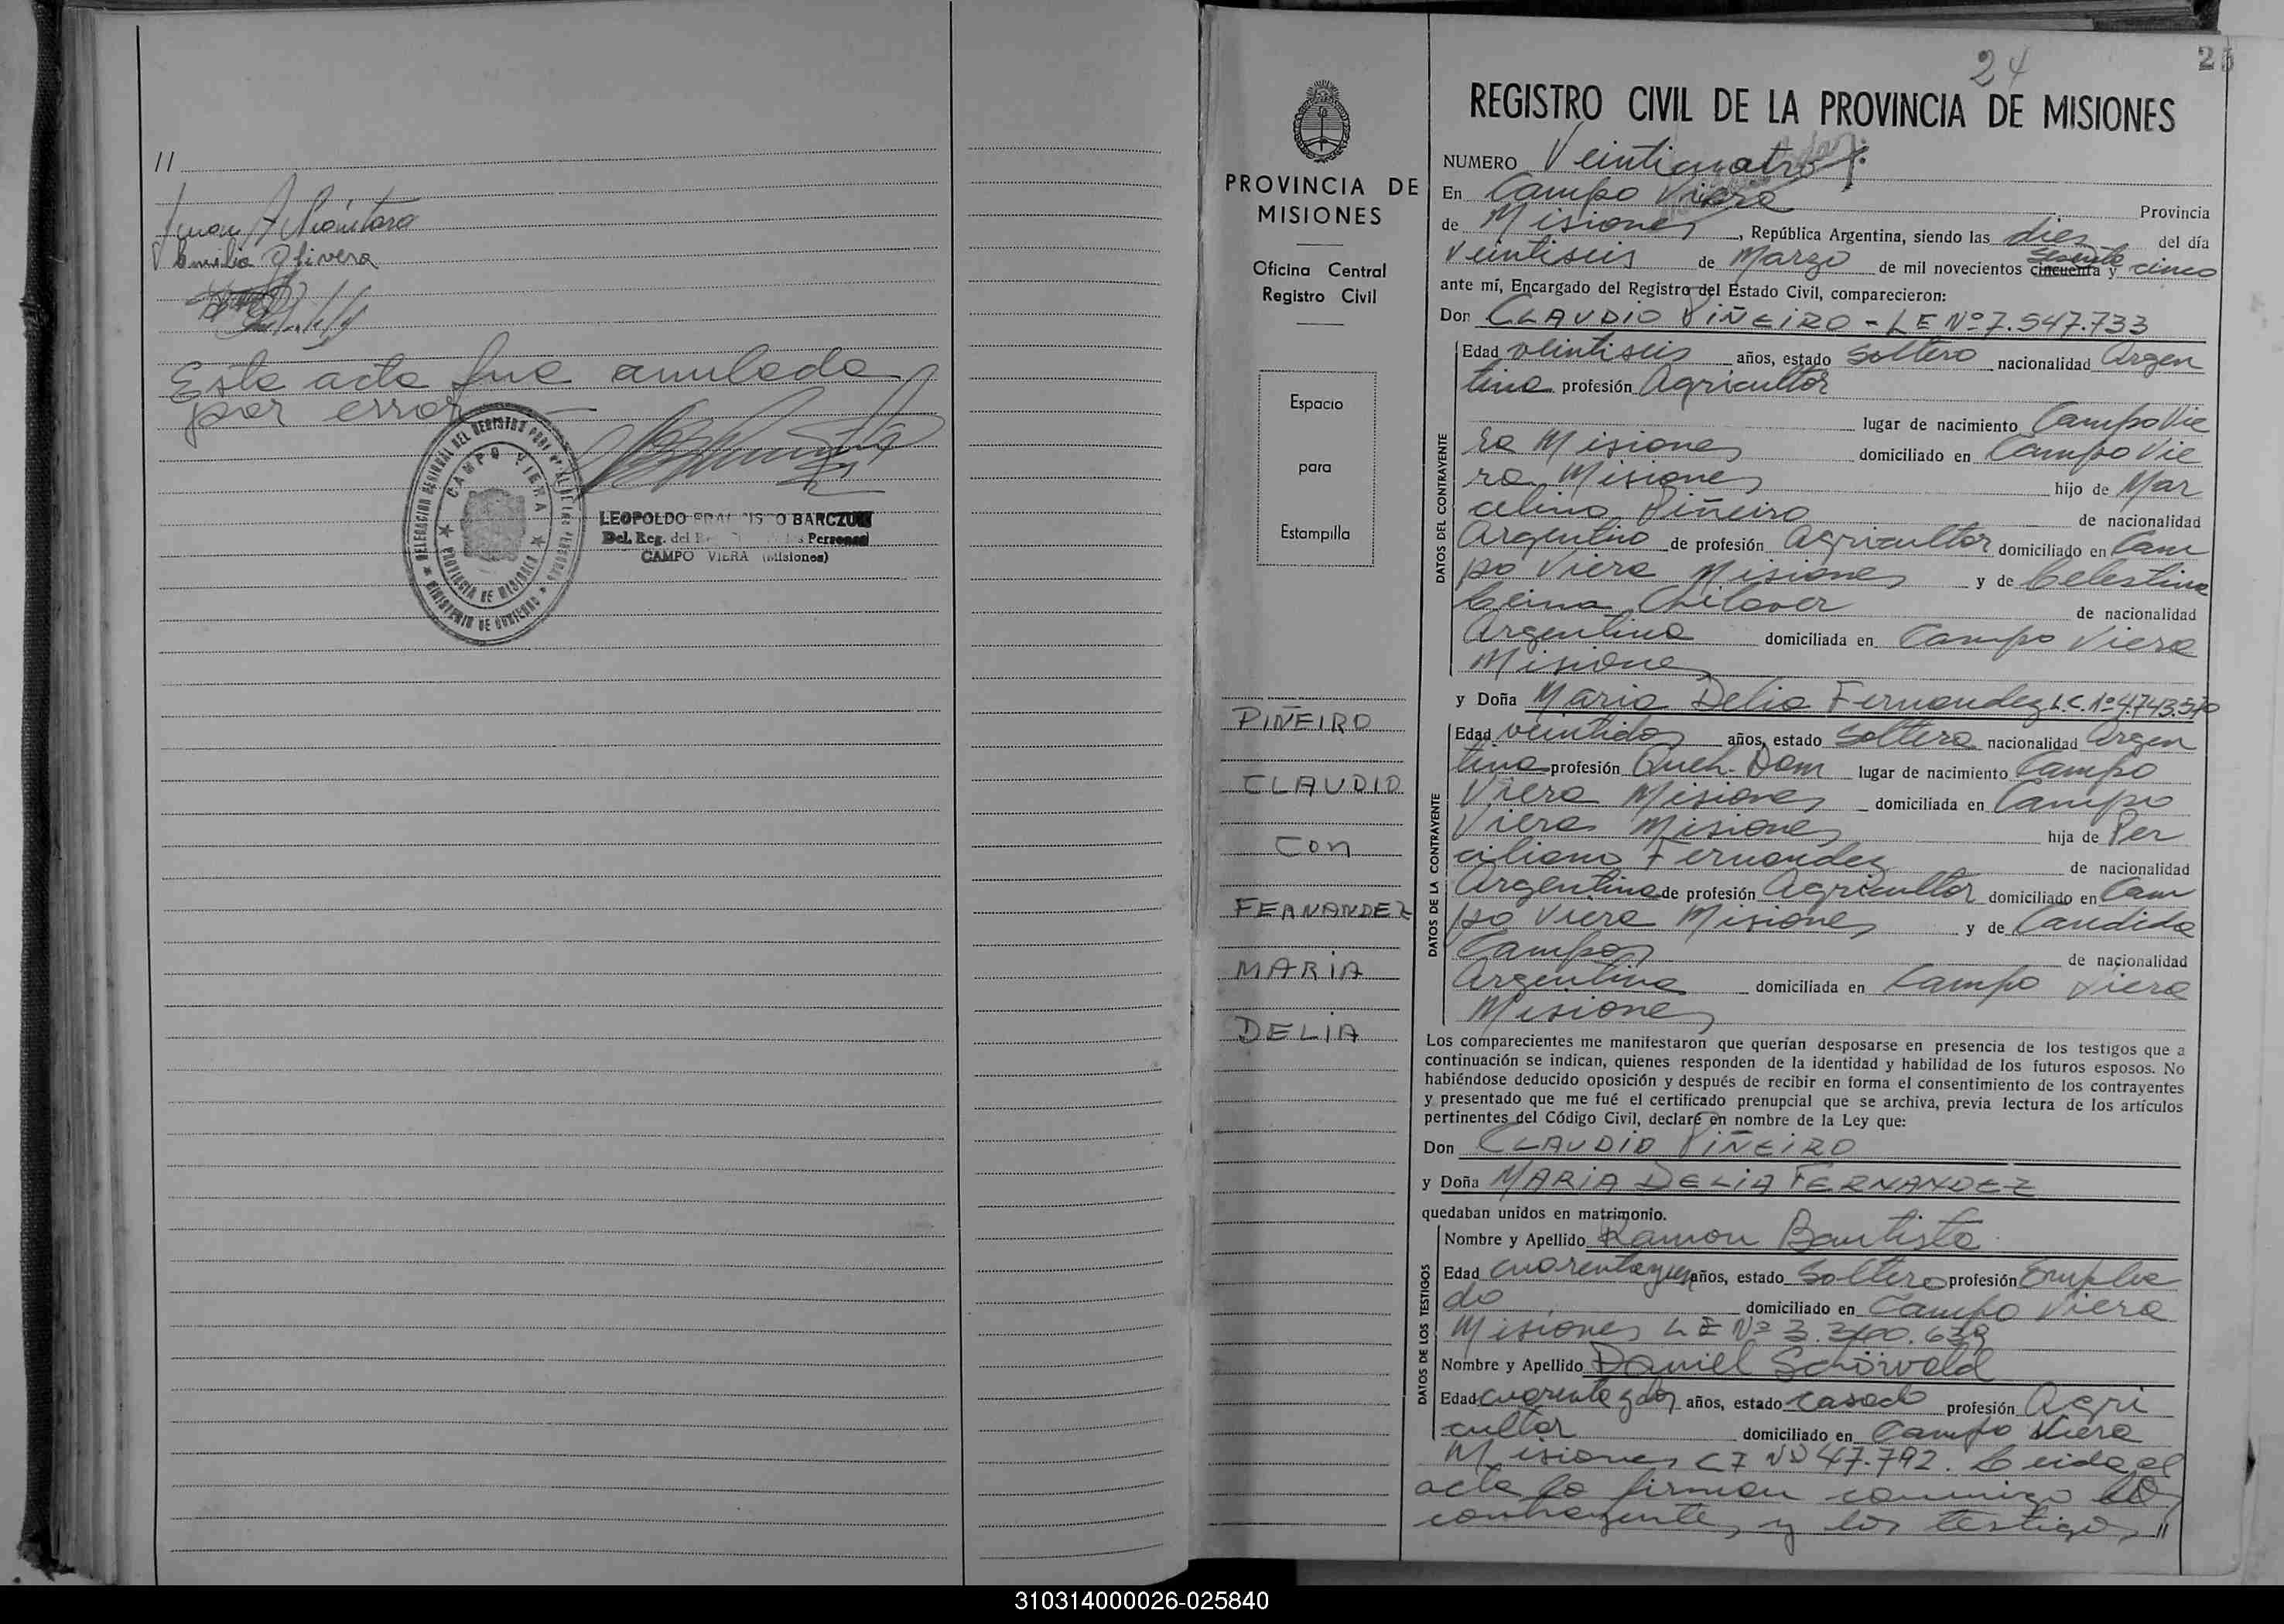 //
Emilia Olivera
Esta acta fue anulada
por error
DELEGACION REGIONAL DEL REGISTRO PCIAL. DE LAS PERSONAS
CAMPO VIERA
PROVINCIA DE MISIONES
MINISTERIO DE GOBIERNO
LEOPOLDO FRANCISCO BARCZUK
Del. Reg. del
CAMPO VIERA (Misiones)
PROVINCIA DE
MISIONES
Oficina Central
Registro Civil
Espacio
para
Estampilla
PIÑEIRO
CLAUDIO
Con
FERNANDEZ
MARIA
DELIA
24
REGISTRO CIVIL DE LA PROVINCIA DE MISIONES
NUMERO Veinticuatro
En Campo Viera Provincia
de Misiones, República Argentina, siendo las diez del día
Veintiseis de Marzo de mil novecientos cincuenta sesenta y cinco
ante mí, Encargado del Registro del Estado Civil, comparecieron:
Don CLAUDIO PIÑEIRO - LE Nº 7.547.733
Edad veintiseis años, estado Soltero nacionalidad Argen
tina profesión Agricultor
lugar de nacimiento Campo Vie
ra Misiones domiciliado en Campo Vie
ra Misiones hijo de Mar
celino Piñeiro de nacionalidad
Argentino de profesión Agricultor domiciliado en Cam
po Viera Misiones y de Celestina
Chilaver de nacionalidad
Argentina domiciliada en Campo Viera
Misiones
DATOS DEL CONTRAYENTE
y Doña Maria Delia Fernandez L.C. Nº 4.743.570
Edad veintidos años, estado Soltera nacionalidad Argen
tina profesión Queh. Dom lugar de nacimiento Campo
Viera Misiones domiciliada en Campo
Viera Misiones hija de Per
ciliano Fernandez de nacionalidad
Argentina de profesión Agricultor domiciliado en Cam
po Viera Misiones y de Candida
Campos de nacionalidad
Argentina domiciliada en Campo Viera
Misiones
DATOS DE LA CONTRAYENTE
Los comparecientes me manifestaron que querían desposarse en presencia de los testigos que a
continuación se indican, quienes responden de la identidad y habilidad de los futuros esposos. No
habiéndose deducido oposición y después de recibir en forma el consentimiento de los contrayentes
y presentado que me fué el certificado prenupcial que se archiva, previa lectura de los artículos
pertinentes del Código Civil, declaré en nombre de la Ley que:
Don CLAUDIO PIÑEIRO
y Doña MARIA DELIA FERNANDEZ
quedaban unidos en matrimonio.
Nombre y Apellido Ramon Bautista
Edad años, estado Soltero profesión Emplea
do domiciliado en Campo Viera
Misiones LE Nº 3.
Nombre y Apellido Daniel Schörwald
Edad cuarenta y dos años, estado casado profesión Agri
cultor domiciliado en Campo Viera
Misiones CI Nº 47.792. Leida el
acta la firman conmigo los
contrayentes y los testigos //
DATOS DE LOS TESTIGOS
310314000026-025840